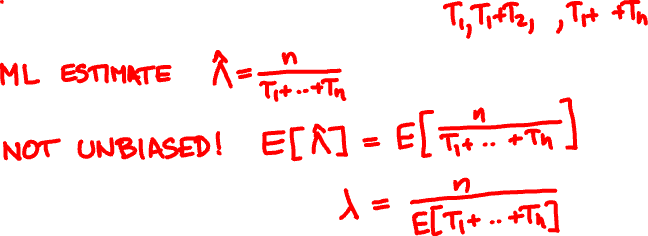 T₁, T₁+T₂, , T₁+ +Tₙ
ML ESTIMATE Λ̂ = n / (T₁+..+Tₙ)
NOT UNBIASED! E[Λ̂] = E[n / (T₁+..+Tₙ)]
λ = n / E[T₁+..+Tₙ]